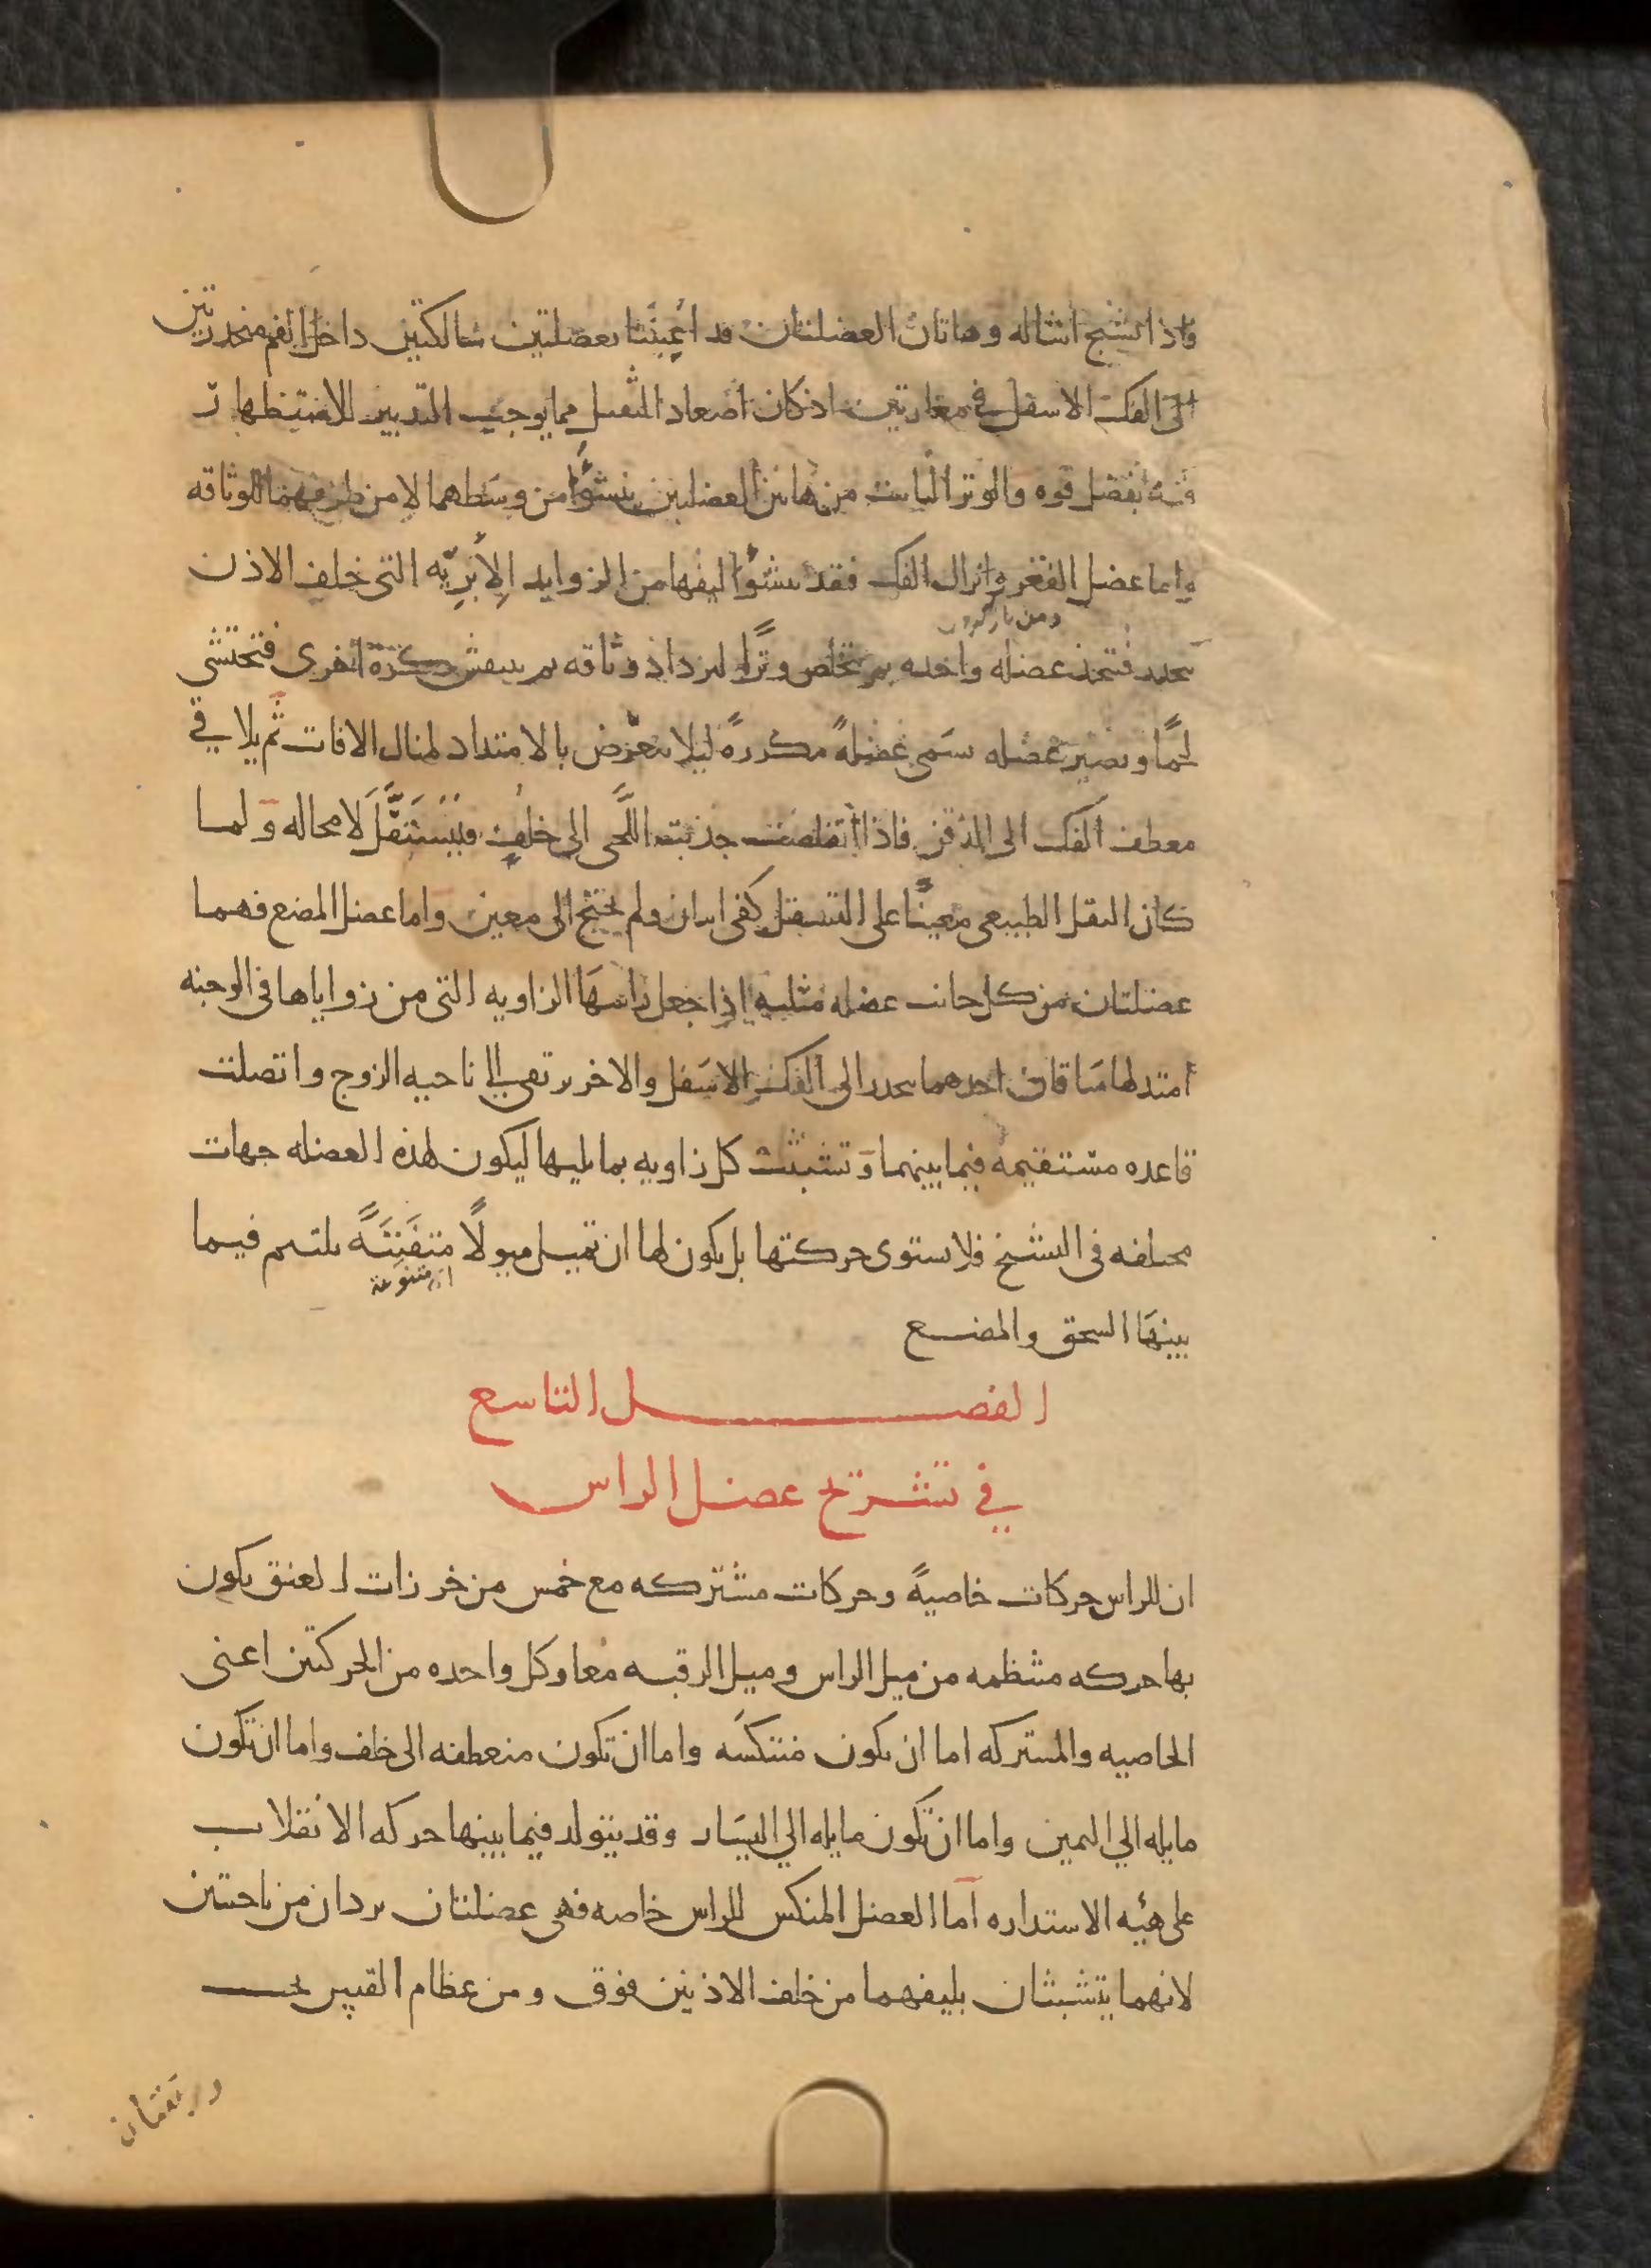 فاذا تشنج اشاله وهاتان العضلتان قد اعينتا بعضلتين سالكتين داخل الفم منحدرتين
الى الفك الاسفل في مغارتين اذ كان اصعاد الثقيل مما يوجب التدبير الاستظهار
فيه بفضل قوه والوتر النابت من هاتين العضلتين ينشوا من وسطهما لا من طرفيهما للوثاقه
واما عضل الفغر وانزال الفك فقد ينشوا ليفها من الزوايد الابريه التي خلف الاذن
ينحدر فتتخذ عضله واحده ثم تخلص وترا لتزداد وثاقه ثم ينتفش كرة اخرى فتحتشي
لحما وتصير عضله تسمى عضلة مكررة ليلا تتعرض بالامتداد لمنال الافات ثم يلاقي
معطف الفك الى الذقن فاذا تقلصت جذبت اللحى الى خلف فيتسفل لا محاله ولما
كان الثقل الطبيعي معينا على التسفل كفى اثنان ولم يحتج الى معين واما عضل المضغ فهما
عضلتان من كل جانب عضله مثلثه اذا جعل راسها الزاويه التي من زواياها في الوجنه
امتد لها ساقان احدهما ينحدر الى الفك الاسفل والاخر يرتقي الى ناحيه الزوج واتصلت
قاعده مستقيمه فيما بينهما وتشبثت كل زاويه بما يليها ليكون لهذه العضله جهات
مختلفه في التشنج فلا تستوي حركتها بل يكون لها ان تميل ميولا متفننة يلتيم فيما
اي متنوعة
بينها السحق والمضغ
الفصل التاسع
في تشريح عضل الراس
ان للراس حركات خاصية وحركات مشتركه مع خمس من خرزات العنق يكون
بها حركه منتظمه من ميل الراس وميل الرقبه معا وكل واحده من الحركتين اعني
الخاصيه والمشتركه اما ان يكون منتكسه واما ان تكون منعطفه الى خلف واما ان تكون
مايله الي اليمين واما ان تكون مايله الي اليسار وقد يتولد فيما بينها حركه الانقلاب
على هيئه الاستداره اما العضل المنكس للراس خاصه فهي عضلتان يردان من ناحيتين
لانهما يتشبثان بليفهما من خلف الاذنين فوق ومن عظام القس تحت
ويرتقيان